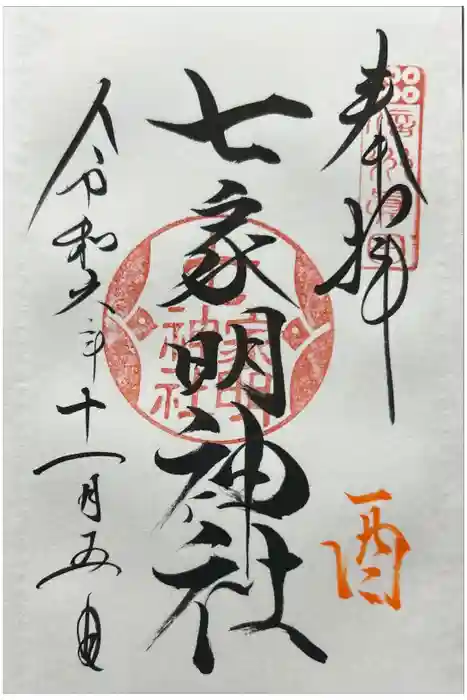 奉拝
酉
七家明神社
令和六年十一月五日